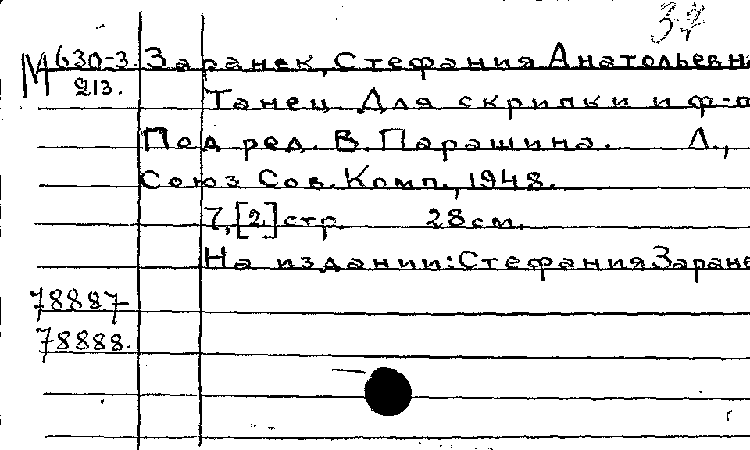 37
М 630-3 Заранек, Стефания Анатольевна
213. Танец Для скрипки и ф-п
Под ред. В. Парашина. Л.,
Союз Сов. Комп., 1948.
7, [2] стр. 28 см.
На издании: Стефания Заране
78887
78888.